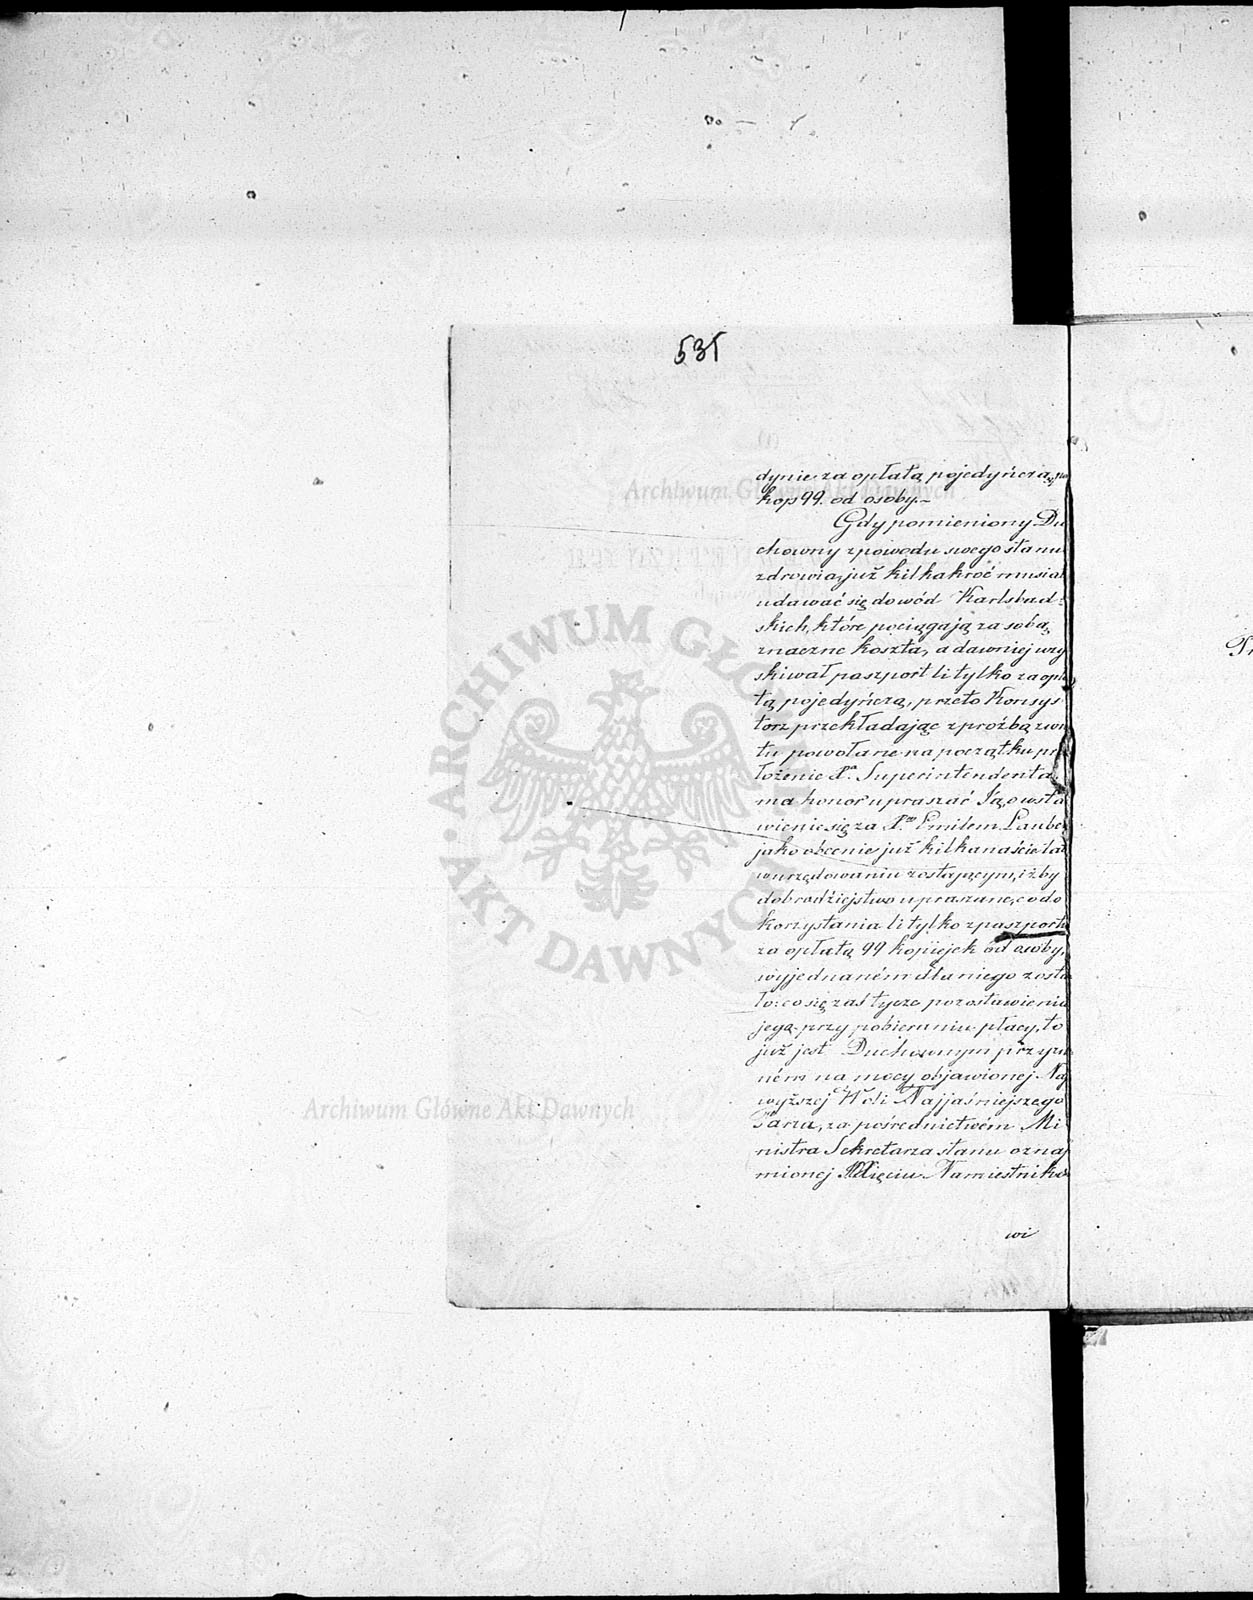 535
dynie za opłatą pojedyńczą, po
kop 99. od osoby.–
Gdy pomieniony Du
chowny z powodu swego stanu
zdrowia, już kilkakroć musiał
udawać się do wód Karlsbad-
skich, które pociągają za sobą
znaczne koszta, a dawniej uzy
skiwał paszport li tylko za opła
tą pojedyńczą, przeto Konsys
torz przekładając z proźbą
tu powołane na początku prze
łożenie Pa. Superintendenta,
ma honor upraszać Ją, o wsta
wienie się za Pm Emilem Lauber
jako obecnie już kilkanaście lat
w urzędowaniu zostającym, iżby
dobrodziejstwo upraszane, co do
korzystania li tylko z paszportu
za opłatą 99 kopiejek od osoby,
wyjednaném dla niego zosta
ło: co się zaś tycze pozostawienia
jego przy pobieraniu płacy, to
już jest Duchownym przyzna
ném na mocy objawionej Naj
wyższej Woli Najjaśniejszego
Pana, za pośrednictwém Mi
nistra Sekretarza stanu oznaj
mionej Xięciu Namiestniko
wi
ARCHIWUM GŁÓWNE AKT DAWNYCH
Archiwum Główne Akt Dawnych
Archiwum Główne Akt Dawnych